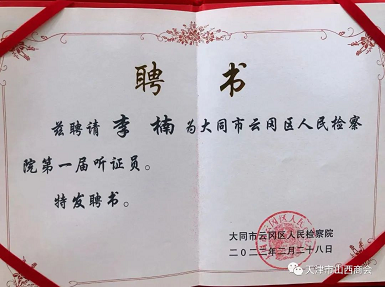 聘书
兹聘请 李楠 为大同市云冈区人民检察
院第一届听证员。
特发聘书。
大同市云冈区人民检察院
二〇二二年二月二十八日
天津市山西商会